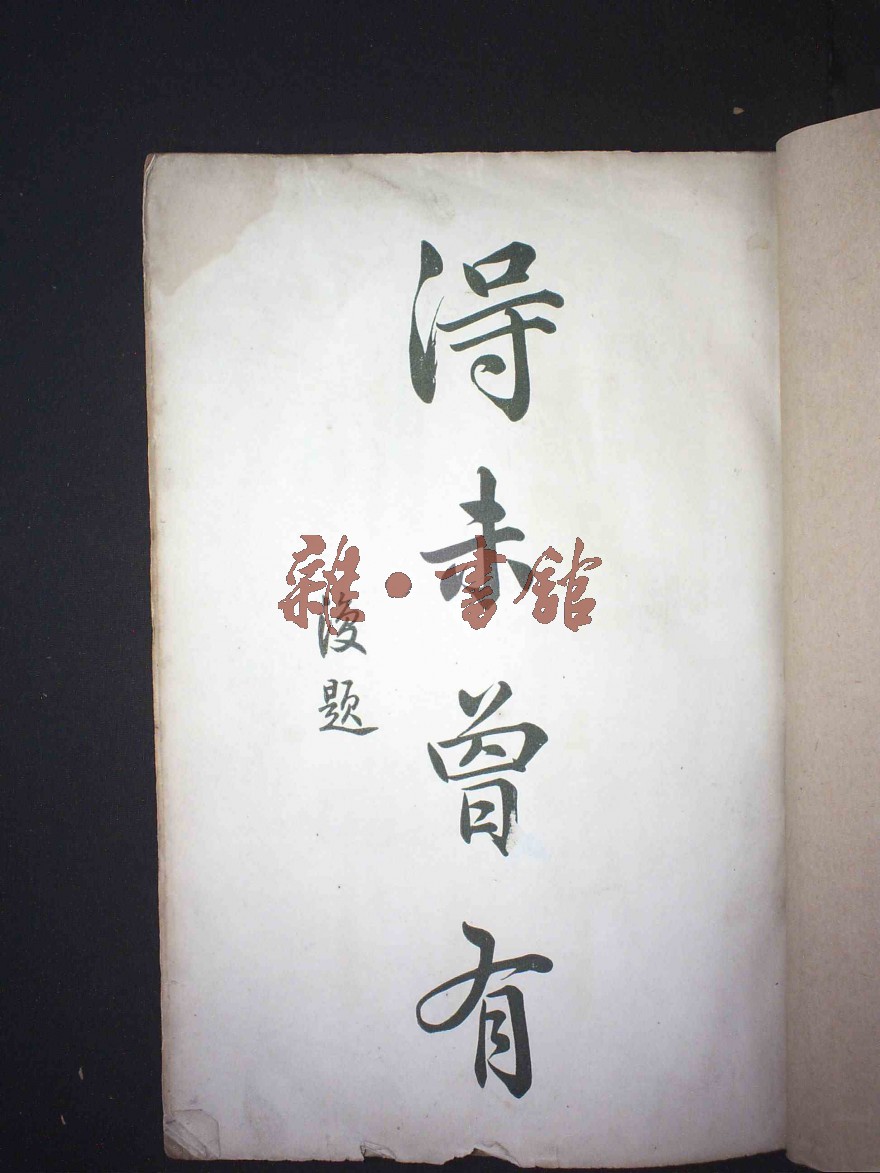 得未曾有
題
雜·書館